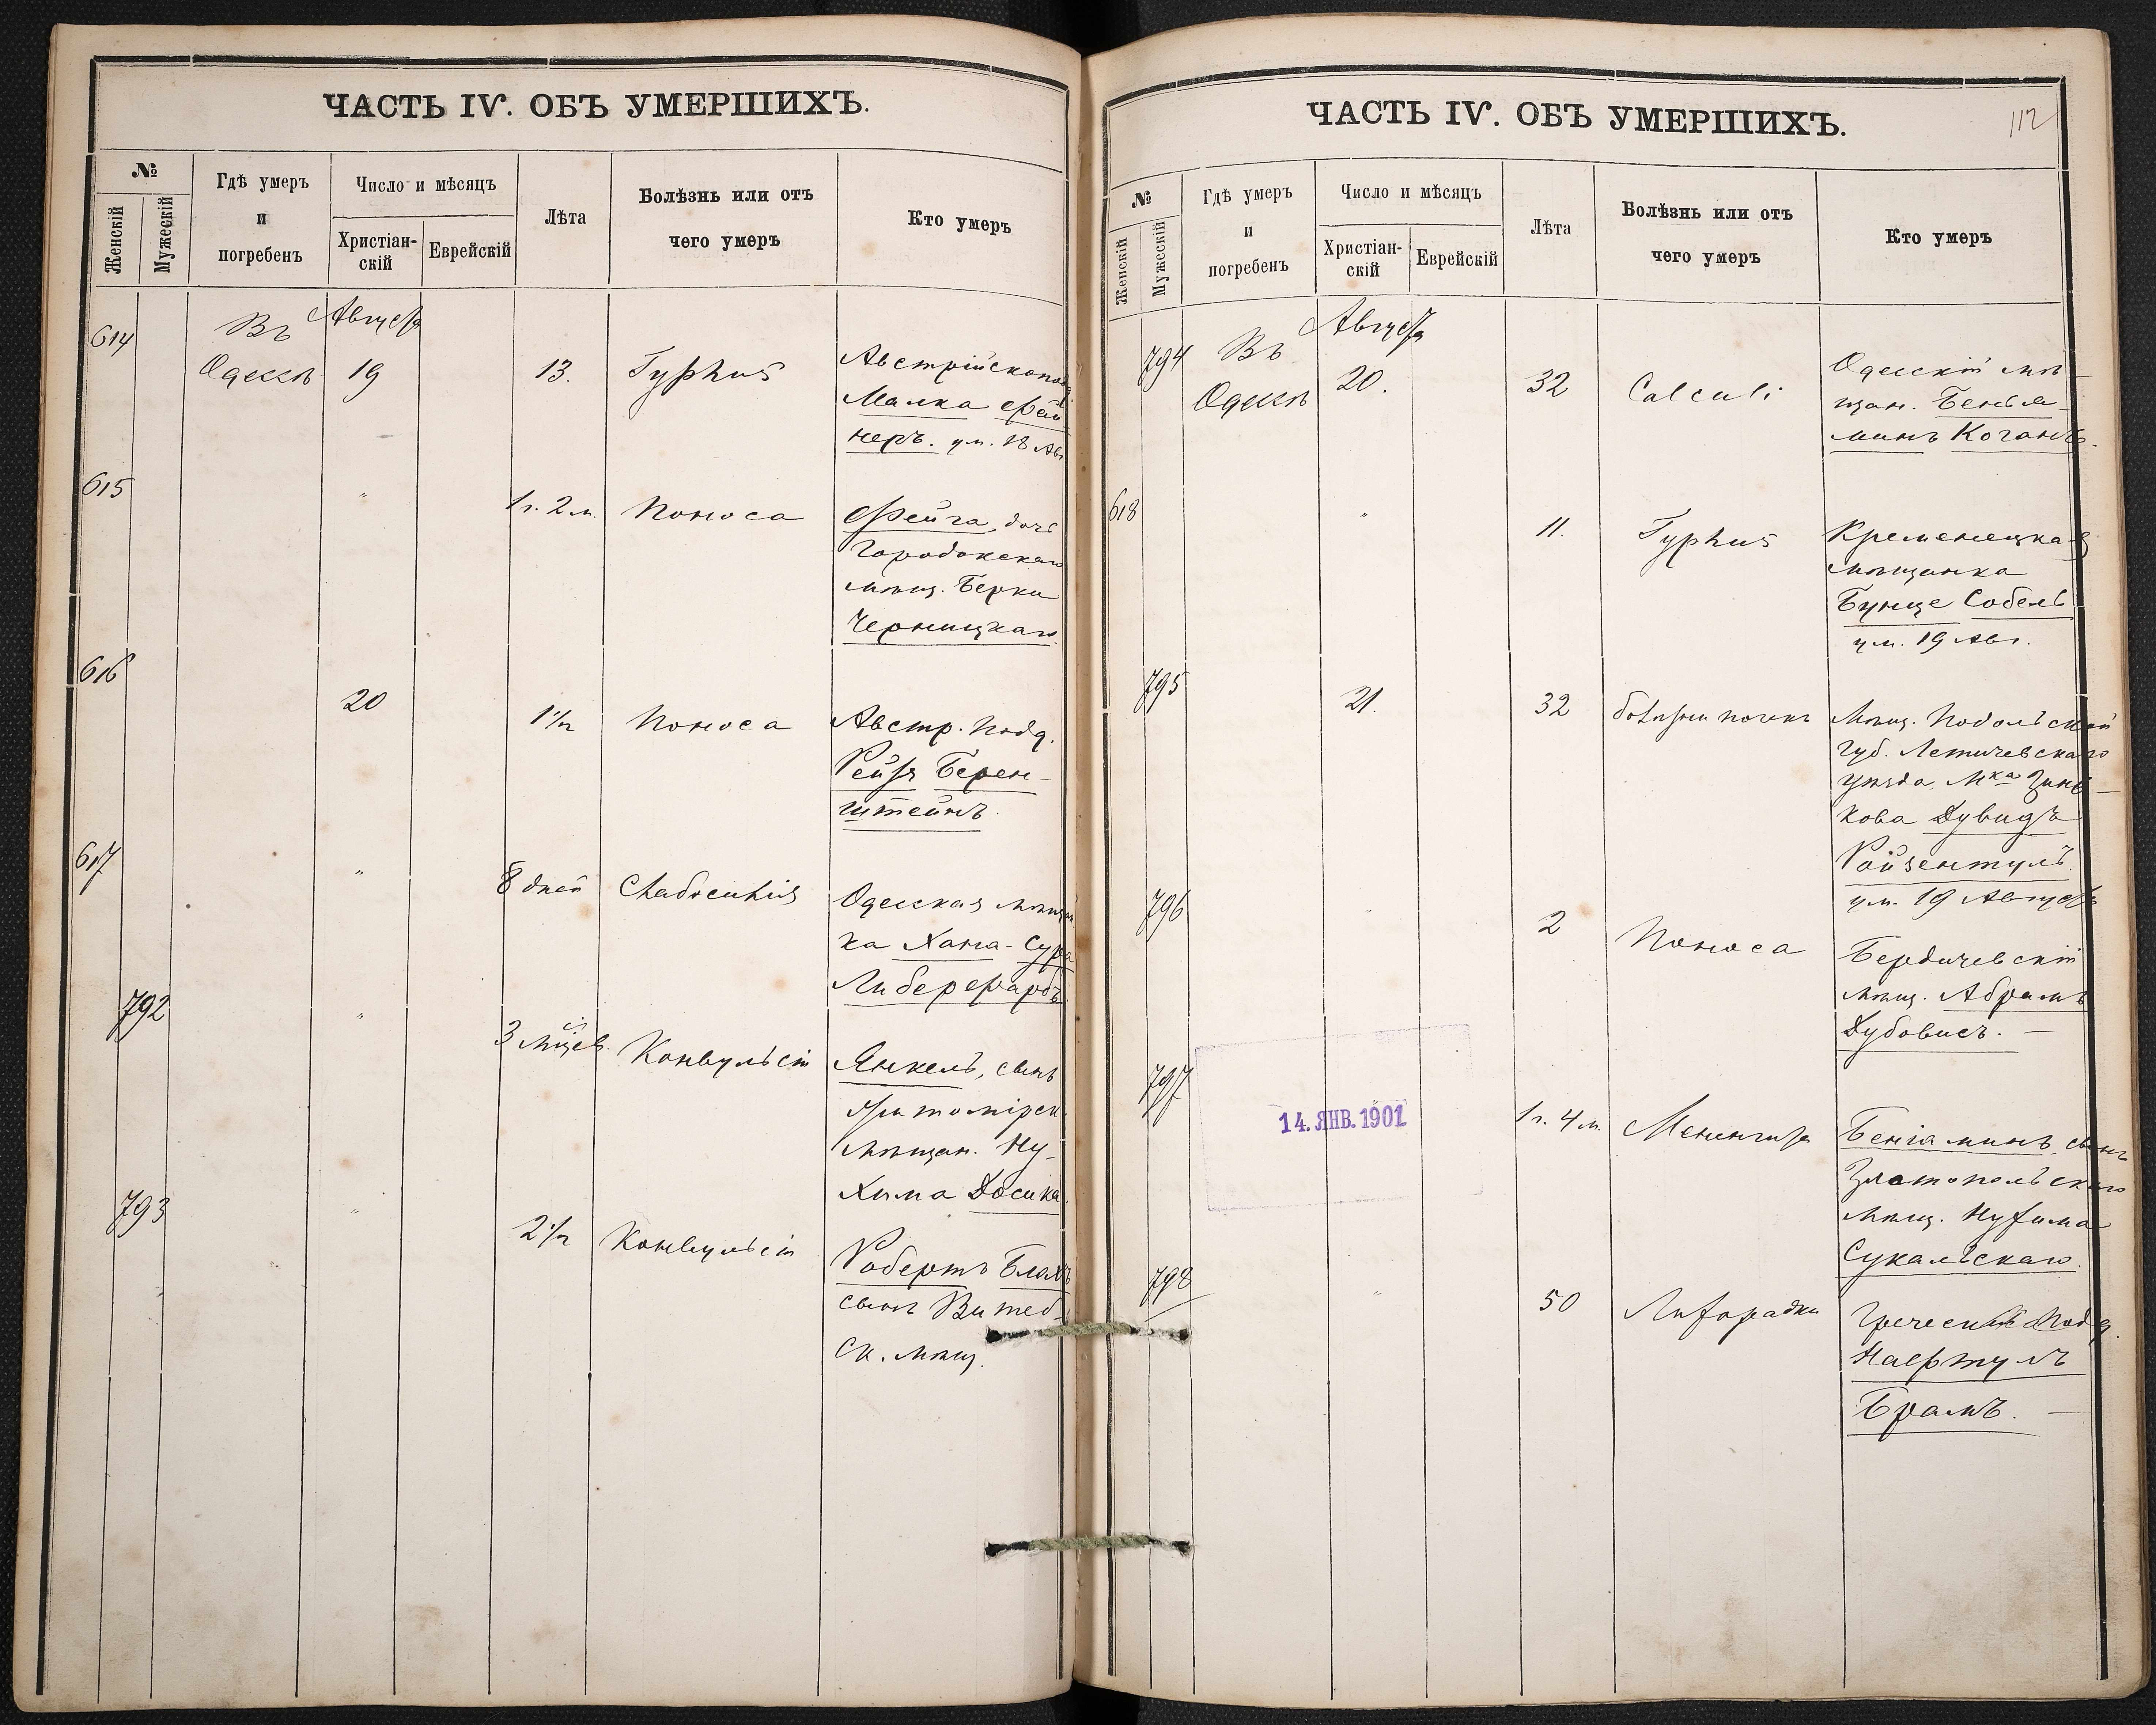 ЧАСТЬ IV. ОБЪ УМЕРШИХЪ.
№
Женскій
Мужескій
Гдѣ умеръ
и
погребенъ
Число и мѣсяцъ
Христіан-
скій
Еврейскій
Лѣта
Болѣзнь или отъ
чего умеръ
Кто умеръ
614
Въ
Одессѣ
Августа
19
13.
Typhus
Малка Фай
неръ. ум. 18 Авг
615
"
1 г. 2 м.
Поноса
Фейга, дочь
Городокскаго
мѣщ. Берки
Черницкаго.
616
20
1 1/2
Поноса
Австр. подд.
Рейзя Берен-
штейнъ.
617
"
8 дней
Слабосилія
Одесская мѣщан
ка Хана-Сура
Либерфарбъ
792
"
3 мѣсев.
Конвульсіи
Янкель, сынъ
Житомірск.
мѣщан. Ну-
хима Досика.
793
"
2 1/2
Конвульсіи
Робертъ Блахъ
сынъ Витеб-
ск. мѣщ.
ЧАСТЬ IV. ОБЪ УМЕРШИХЪ.
112
№
Женскій
Мужескій
Гдѣ умеръ
и
погребенъ
Число и мѣсяцъ
Христіан-
скій
Еврейскій
Лѣта
Болѣзнь или отъ
чего умеръ
Кто умеръ
794
Въ
Одессѣ
Августа
20.
32
Calculi
Одесскій мѣ-
щан. Беньа-
минъ Коганъ.
618
"
11.
Typhus
Кременецкая
мѣщанка
Бунце Собель
ум. 19 Авг.
795
21.
32
болѣзни почекъ
Мѣщ. Подольской
Губ. Летичевскаго
уѣзда, М-ка Зинь-
кова Дувидъ
Ройзентуль.
ум. 19 Августа
796
"
2
Поноса
Бердичевскій
мѣщ. Абрамъ
Дубовисъ. —
797
14. ЯНВ. 1901
1 г. 4 м.
Менингита
Беніаминъ, сынъ
Златопольскаго
мѣщ. Нухима
Сукальскаго.
798
"
50
Лихорадки
Греческій Подд.
Нафтулъ
Брамъ. —